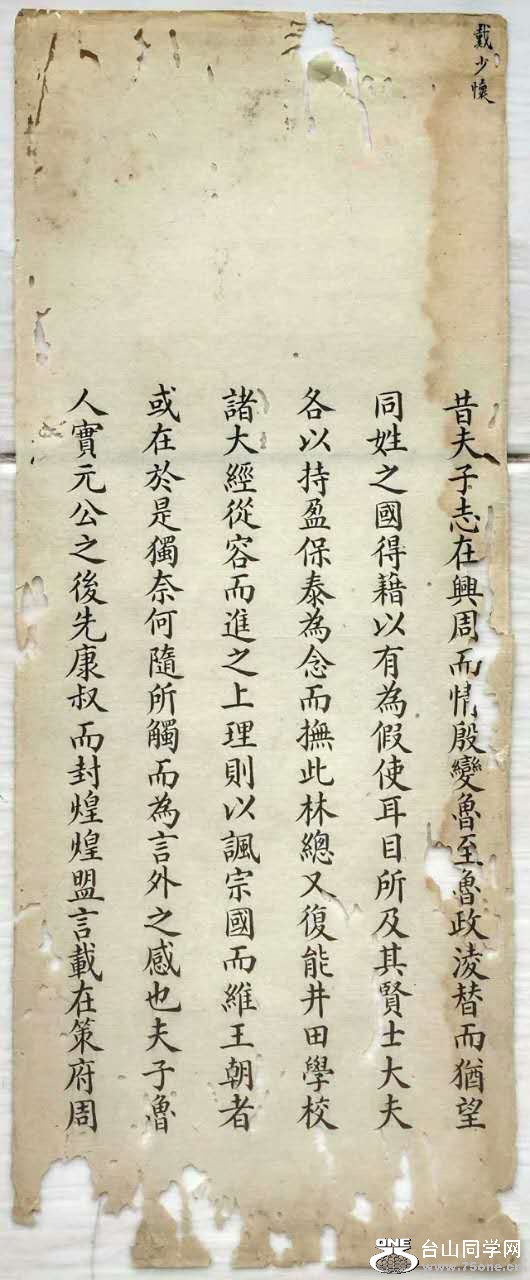 戴少懷
昔夫子志在興周而情殷變魯至魯政淩替而猶望
同姓之國得藉以有為假使耳目所及其賢士大夫
各以持盈保泰為念而撫此林總又復能井田學校
諸大經從容而進之上理則以諷宗國而維王朝者
或在於是獨奈何隨所觸而為言外之感也夫子魯
人實元公之後先康叔而封煌煌盟言載在策府周
ONE 台山同学网
www.75one.cn